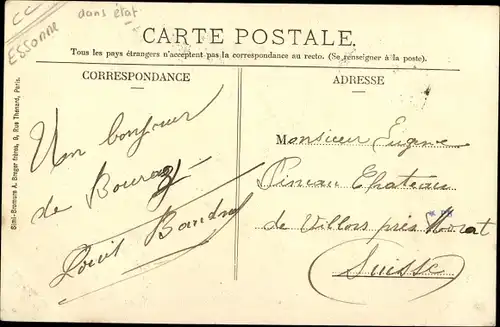 CC
Essonne
dans état
CARTE POSTALE.
Tous les pays étrangers n'acceptent pas la correspondance au recto. (Se renseigner à la poste).
CORRESPONDANCE
ADRESSE
Simili-Bromure A. Breger frères, 9, Rue Thénard, Paris.
Un bonjour
de Bouray
Louis
Monsieur Eugène
Pineau Chateau
de Villars près Morat
Suisse